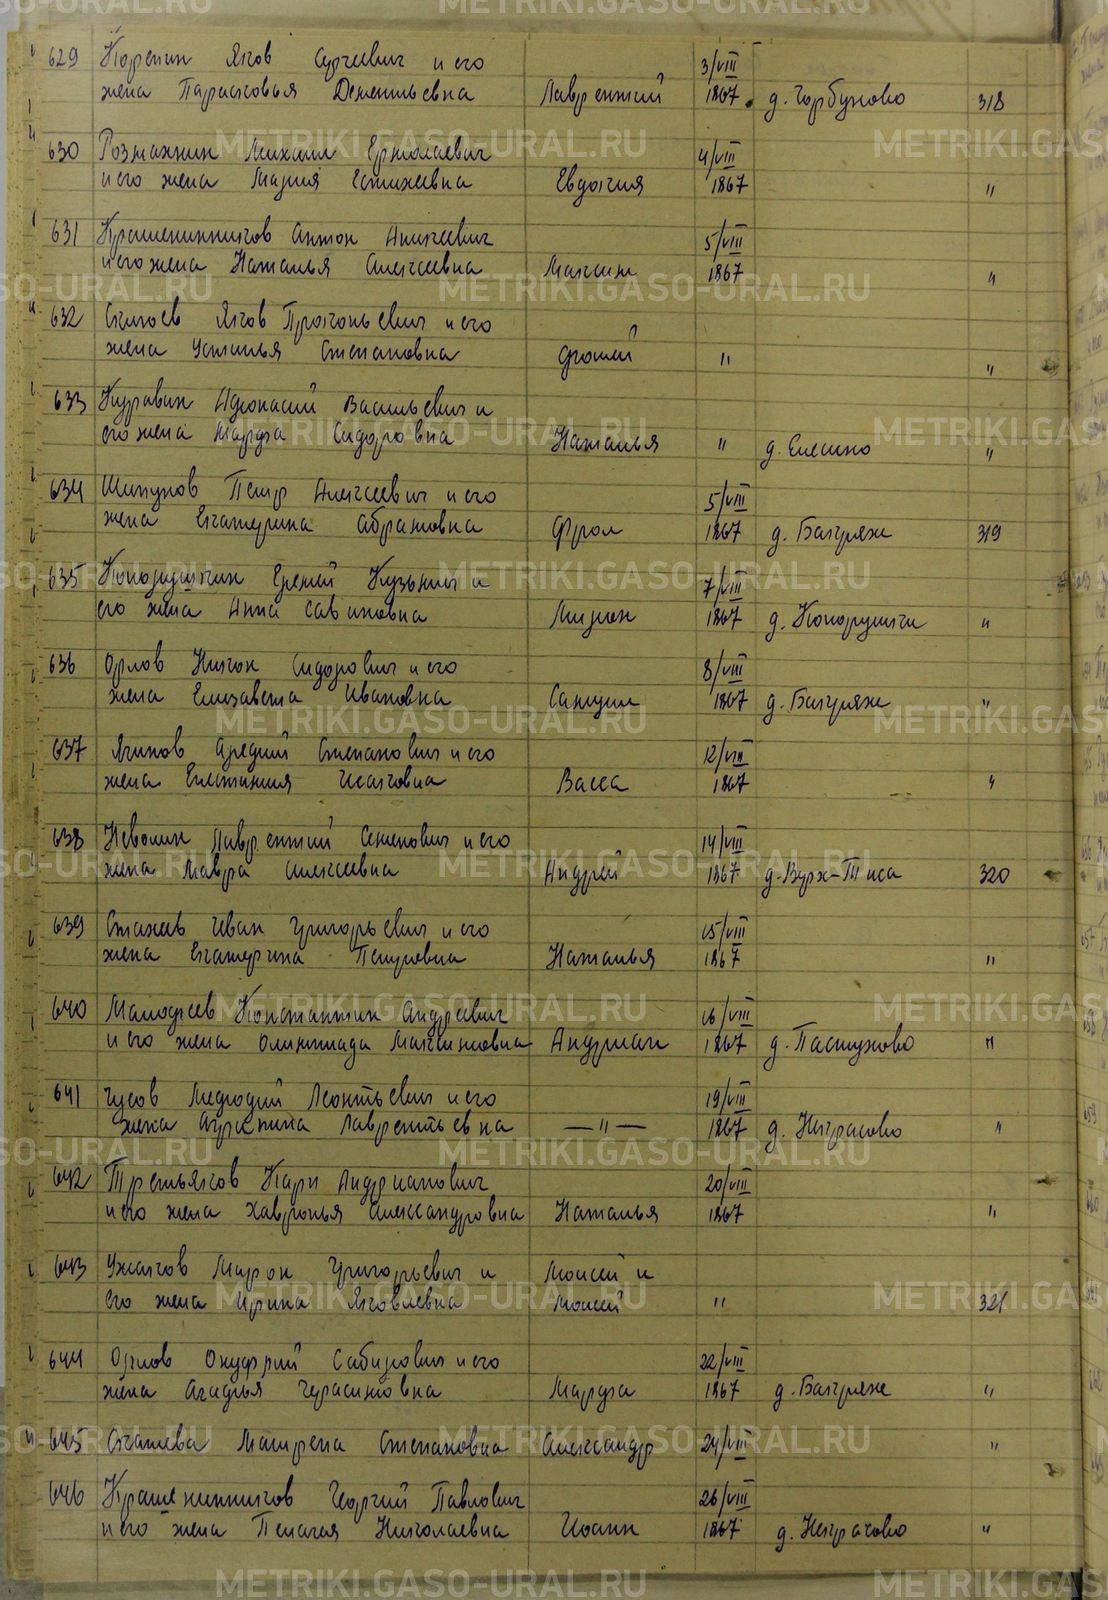 629 Корепин Яков Сергеевич и его 3/VIII
жена Парасковья Дементьевна Лаврентий 1867 д. Горбуново 318
630 Розманнин Михаил Ермолаевич 4/VIII
и его жена Мария Евдокия 1867 "
631 Крашенинников Антон Алексеевич 5/VIII
и его жена Наталья Алексеевна Максим 1867 "
632 Яков Прокопьевич и его
жена Устинья Степановна Фотий " "
633 Журавин Афонасий Васильевич и
его жена Марфа Сидоровна Наталья " д. Елесино "
634 Шипунов Петр Алексеевич и его 5/VIII
жена Екатерина Абрамовна Фрол 1867 д. Багряж 319
635 Копорушкин Еремей Кузьмич и 7/VIII
его жена Анна Савиновна Мирон 1867 д. Копорушки "
636 Орлов Никон Сидорович и его 8/VIII
жена Елизавета Ивановна Самуил 1867 д. Багряж "
637 Якимов Степанович и его 12/VIII
жена Исаковна Васса 1867 "
638 Неволин Лаврентий Семенович и его 14/VIII
жена Мавра Алексеевна Андрей 1867 д. Верх-Тиса 320
639 Стахеев Иван Григорьевич и его 15/VIII
жена Екатерина Петровна Наталья 1867 "
640 Мамофеев Константин Андреевич 16/VIII
и его жена Олимпиада Максимовна Андриан 1867 д. Пастухово "
641 Чусов Мефодий Леонтьевич и его 19/VIII
жена Агрипина Лаврентьевна —"— 1867 д. Некрасово "
642 Третьяков Карп Андрианович 20/VIII
и его жена Хавронья Александровна Наталья 1867 "
643 Ужаков Мирон Григорьевич и Моисей и
его жена Ирина Яковлевна Моисей " 321
644 Орлов Онуфрий и его 22/VIII
жена Агафья Герасимовна Марфа 1867 д. Багряж "
645 Матрена Степановна Александр 24/VIII "
646 Крашенинников Георгий Павлович 26/VIII
и его жена Пелагея Николаевна Иоанн 1867 д. Некрасово "
METRIKI.GASO-URAL.RU